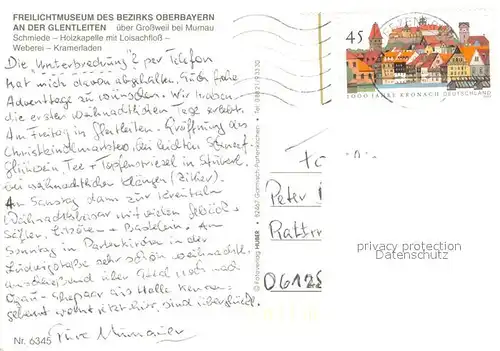 FREILICHTMUSEUM DES BEZIRKS OBERBAYERN
AN DER GLENTLEITEN über Großweil bei Murnau
Schmiede – Holzkapelle mit Loisachfloß –
Weberei – Kramerladen
Die "Unterbrechung" per Telefon
hat mich davon abgehalten, Euch frohe
Adventtage zu wünschen. Wir haben
die ersten weihnachtlichen Tage erlebt.
Am Freitag in Glentleiten - Eröffnung des
Christkindlmarktes bei leichten Schneef.
Glühwein, Tee + Topfenstriezel im Stüberl
bei weihnachtlichen Klängen (Zither).
Am Samstag dann zur
Weihnachtsbasar mit vielen
Säften, + Basteleien. Am
Sonntag in Partenkirchen in der
Ludwigstraße sehr schön weihnachtl.
anschließend über Ettal noch nach
Ogau - Ehepaar aus Halle kennen-
gelernt, wohnt jetzt hier, sind überglückl.
Eure Murnauer
Nr. 6345
© Fotoverlag HUBER · 82467 Garmisch-Partenkirchen · Tel. 08821/
45
1000 JAHRE KRONACH
DEUTSCHLAND
Peter
06128
privacy protection
Datenschutz